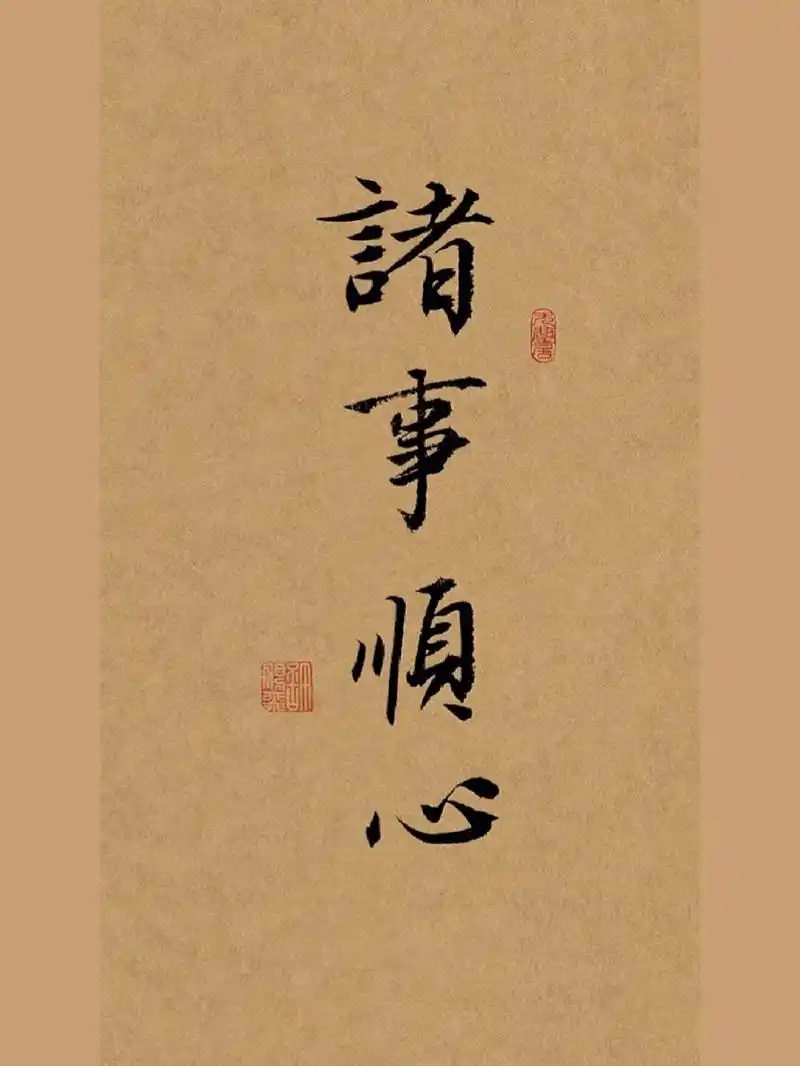 諸事順心